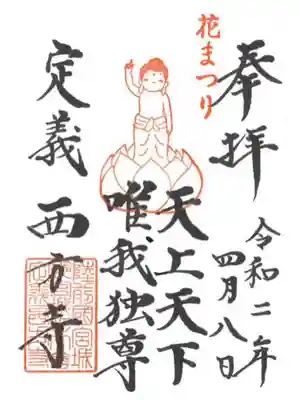 奉拝
令和二年
四月八日
花まつり
天上天下
唯我独尊
定義 西方寺